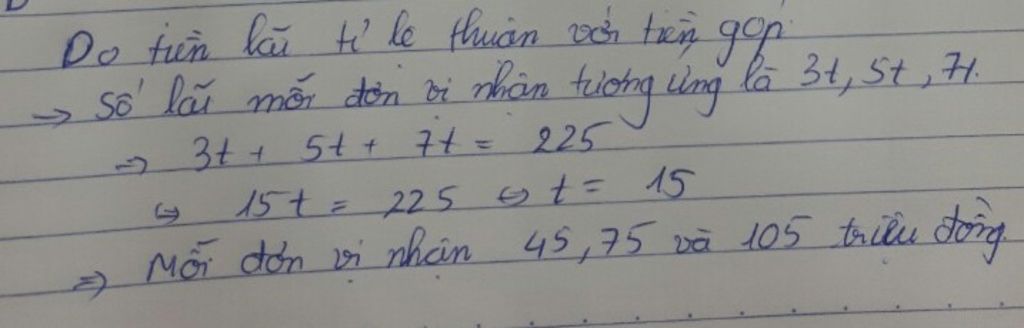 Do tiền lãi tỉ lệ thuận với tiền góp.
→ Số lãi mỗi đơn vị nhận tương ứng là 3t, 5t, 7t.
→ 3t + 5t + 7t = 225
⇔ 15t = 225 ⇔ t = 15
⇒ Mỗi đơn vị nhận 45, 75 và 105 triệu đồng